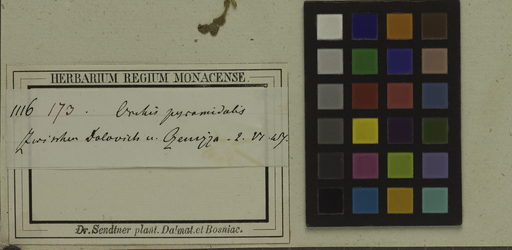 HERBARIUM REGIUM MONACENSE.
1116 173. Orchis pyramidalis
Zwischen Dolovich u. 2. VI. 47.
Dr. Sendtner plant. Dalmat. et Bosniac.